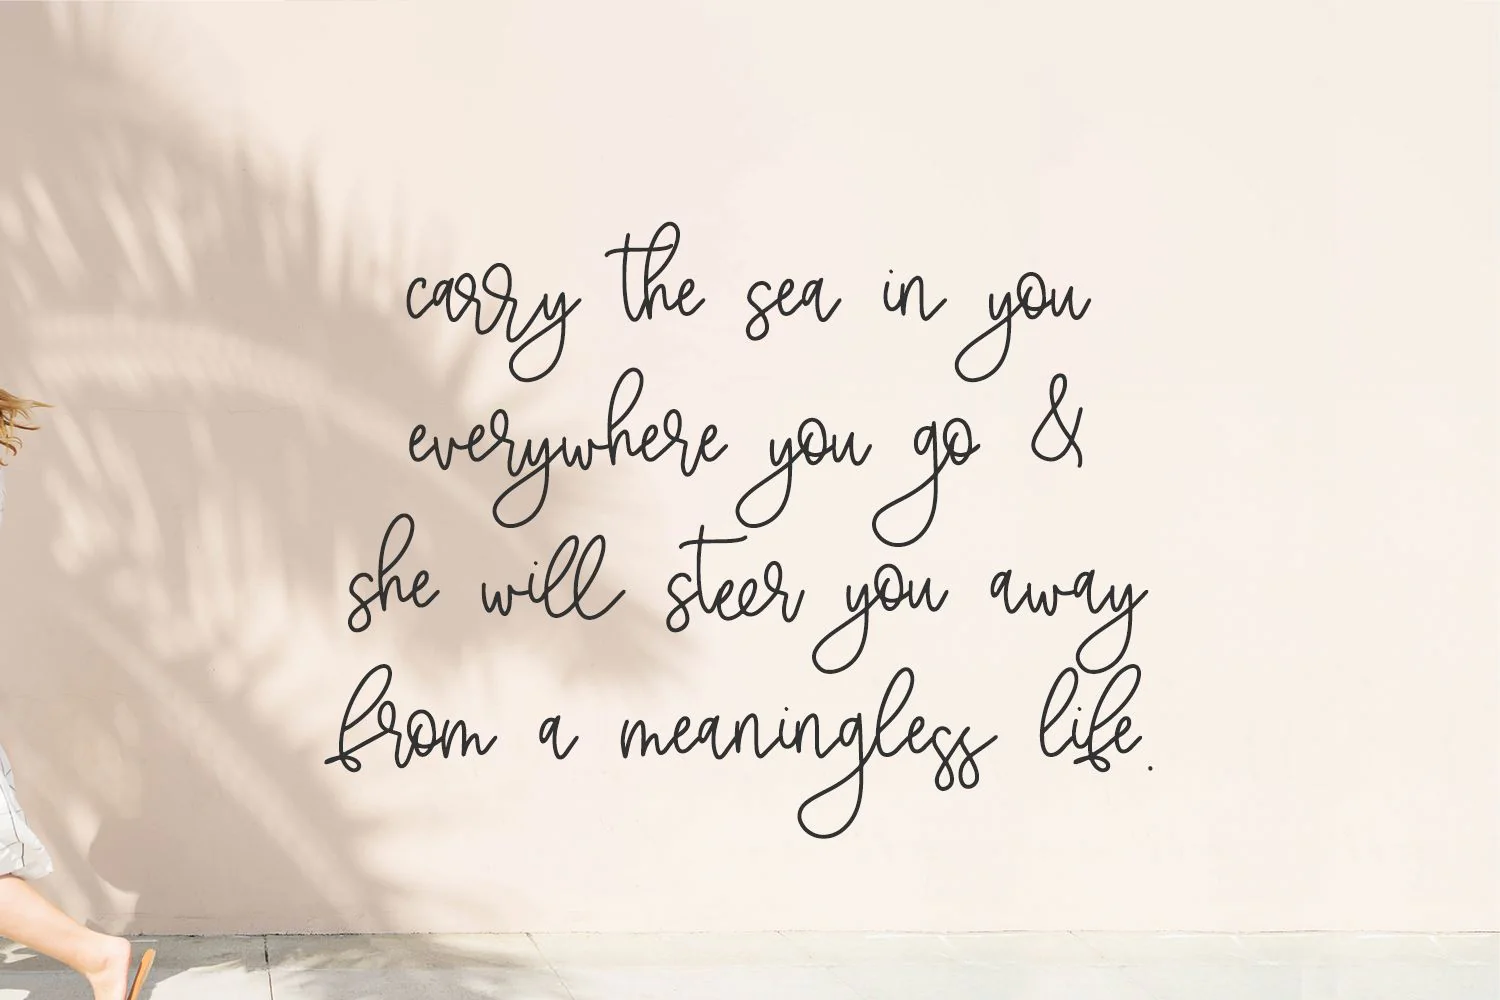 carry the sea in you
everywhere you go &
she will steer you away
from a meaningless life.